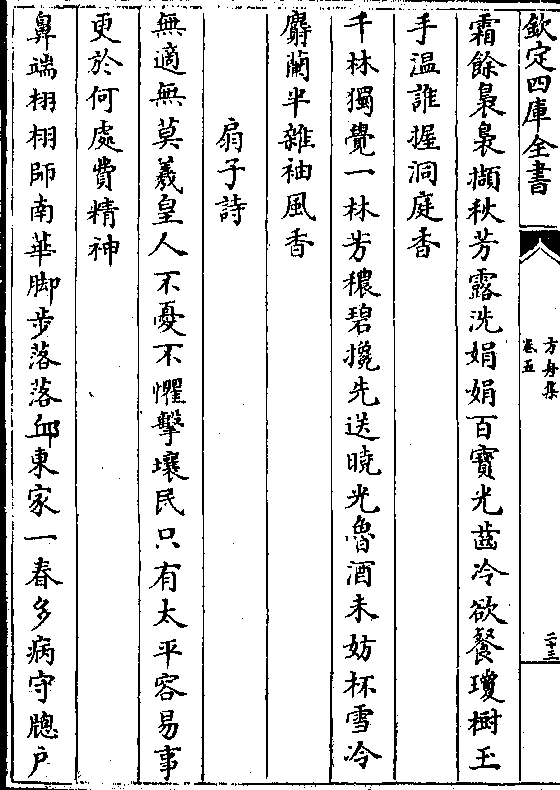 欽定四庫全書
方舟集
卷五
二十三
霜餘裊裊擷秋芳露洗娟娟百寶光齒冷欲餐瓊樹玉
手温誰握洞庭香
千林獨覺一林芳穠碧攙先送曉光魯酒未妨杯雪冷
麝蘭半雜袖風香
扇子詩
無適無莫羲皇人不憂不懼擊壤民只有太平容易事
更於何處費精神
鼻端栩栩師南華脚步落落邱東家一春多病守牕戶